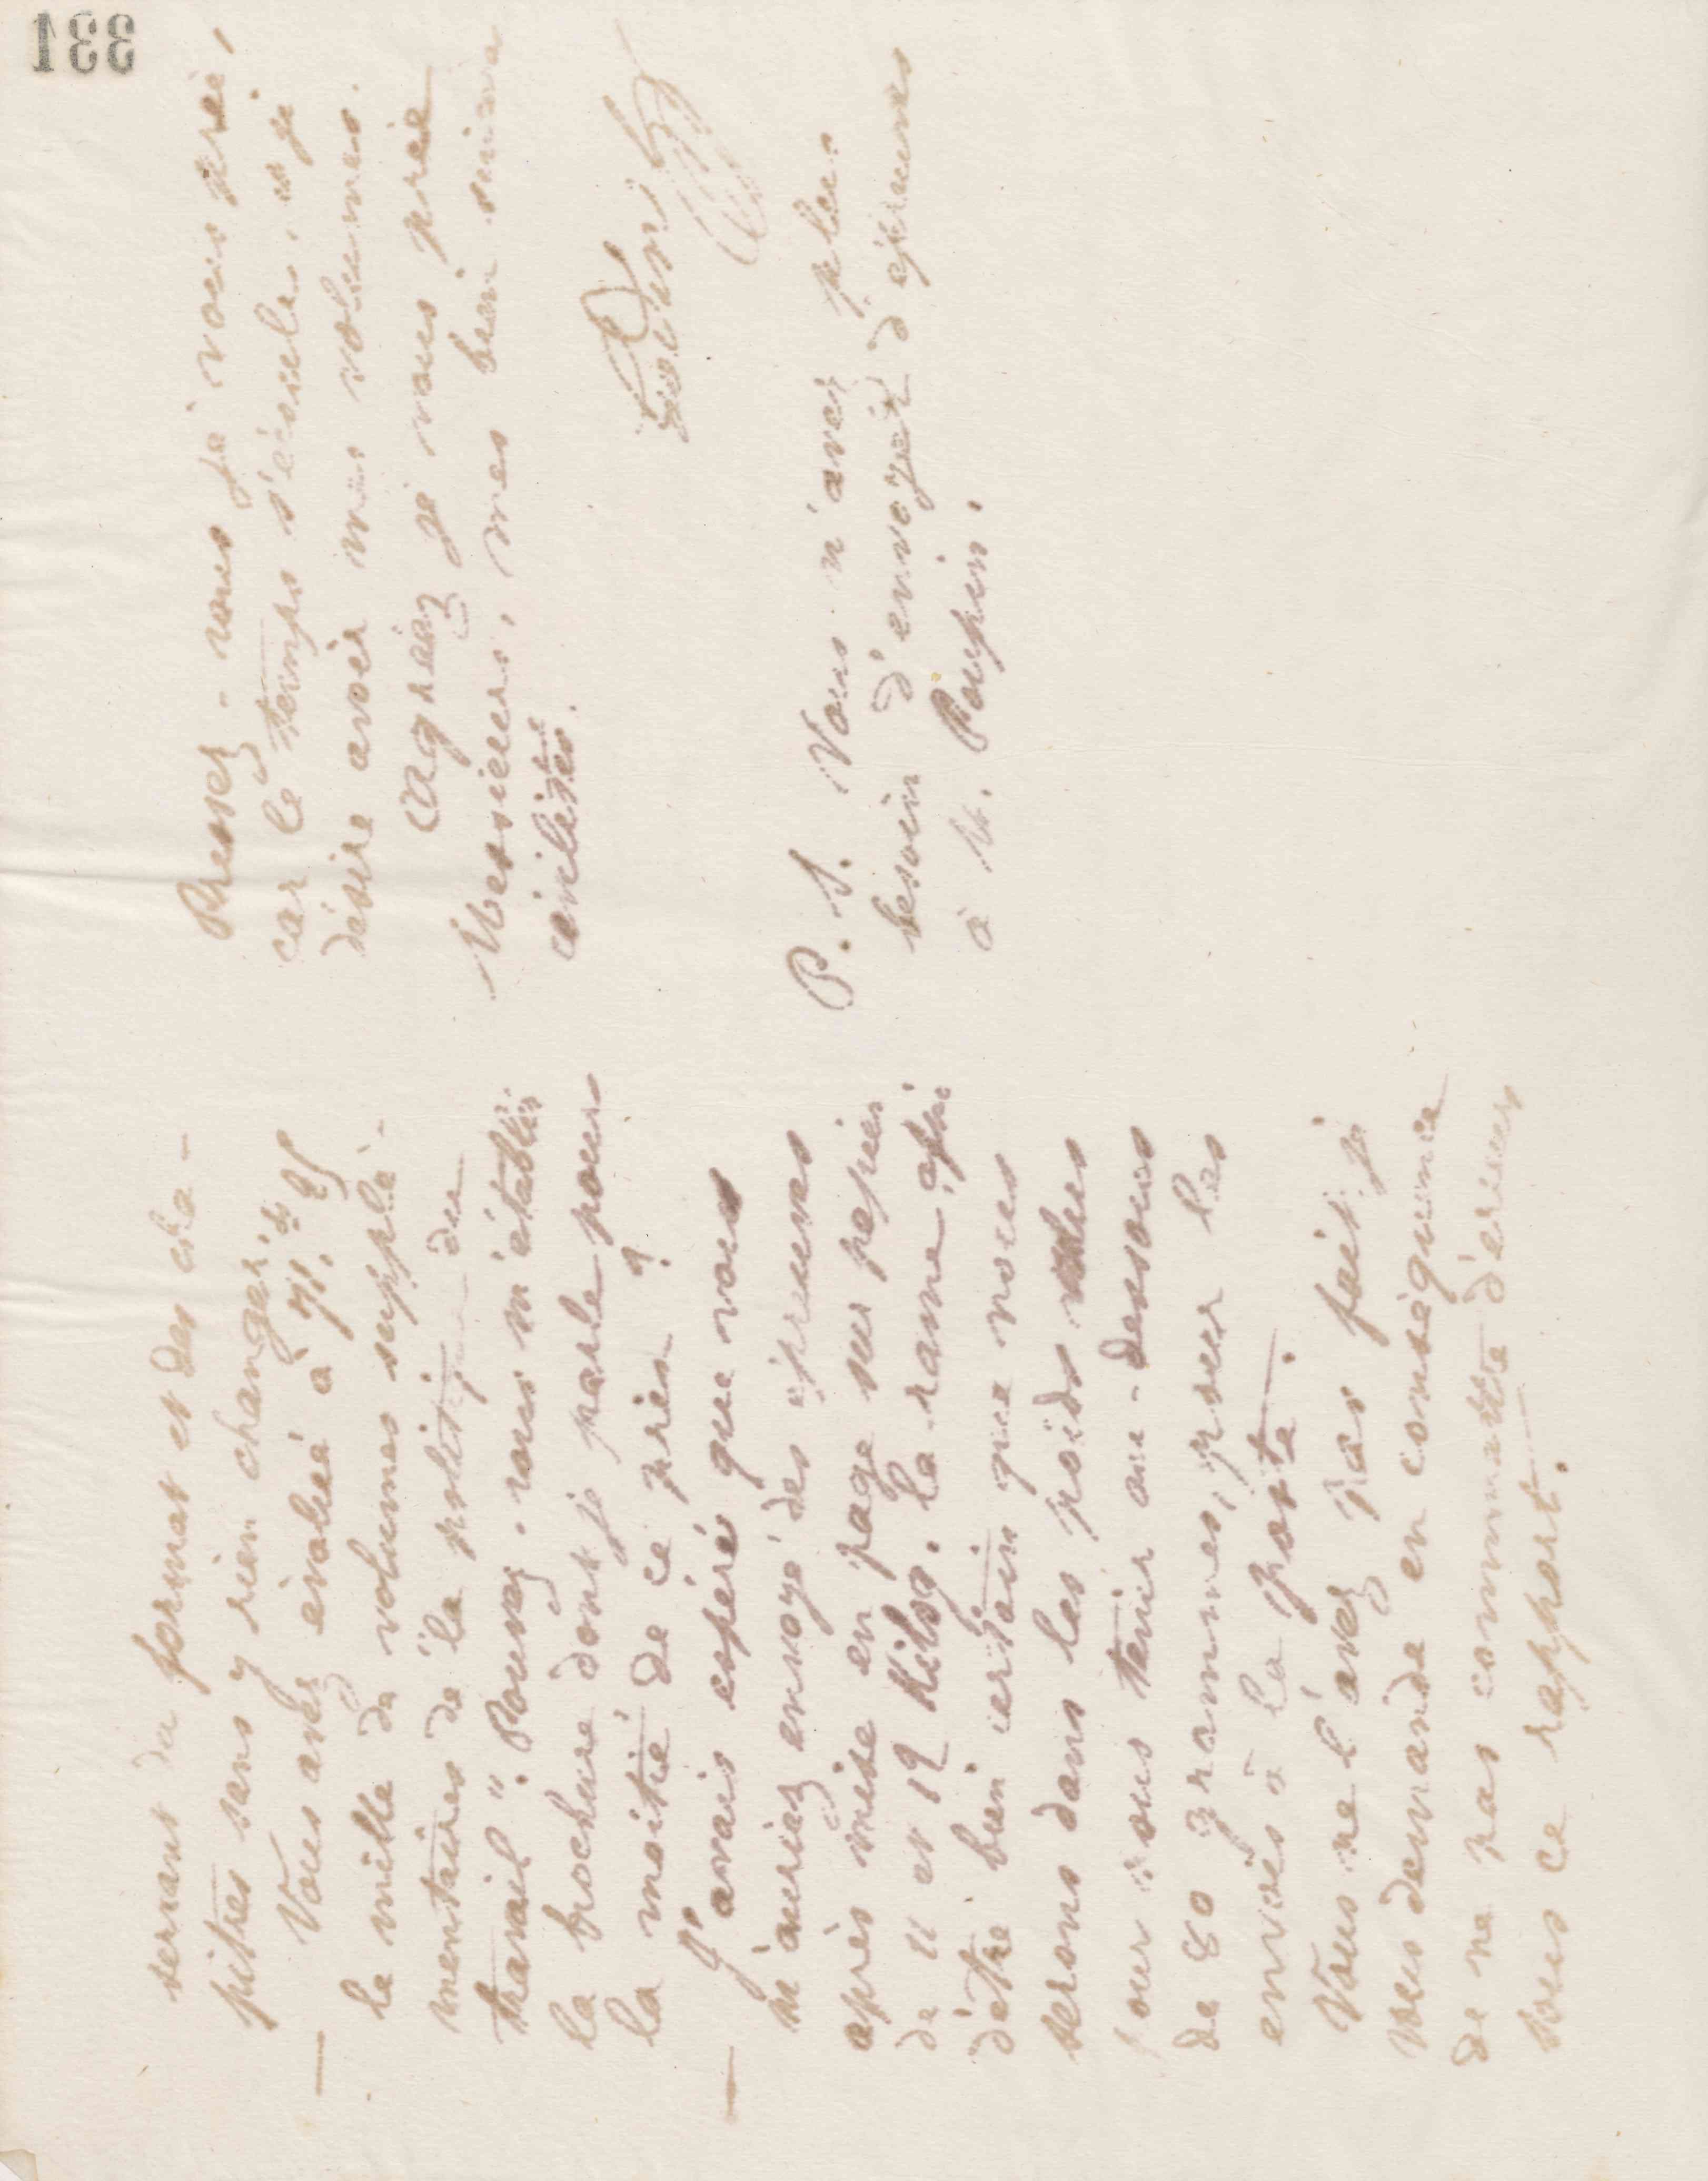 331
servant du format et des cha-
pitres sans y rien changer.
— Vous avez évalué à 71.25
le mille de volumes supplé-
mentaires de "la politique du
travail". Pouvez-vous m'établir
la brochure dont je parle pour
la moitié de ce prix ?
— J'avais espéré que vous
m'auriez envoyé des épreuves
après mise en page sur papier
de 11 et 12 Kilog. la rame afin
d'être bien certain que nous
serons dans les poids
pour nous tenir au-dessous
de 80 grammes, pour les
envois à la poste.
Vous ne l'avez pas fait je
vous demande en conséquence
de ne pas commettre d'erreur
sous ce rapport.
Pressez-vous je vous prie,
car le temps s'écoule, et je
désire avoir mes volumes.
Agréez je vous prie
Messieurs, mes bien sincères
civilités.
Godin
P. S. Vous n'avez plus
besoin d'envoyer d'épreuves
à M. Poupin.